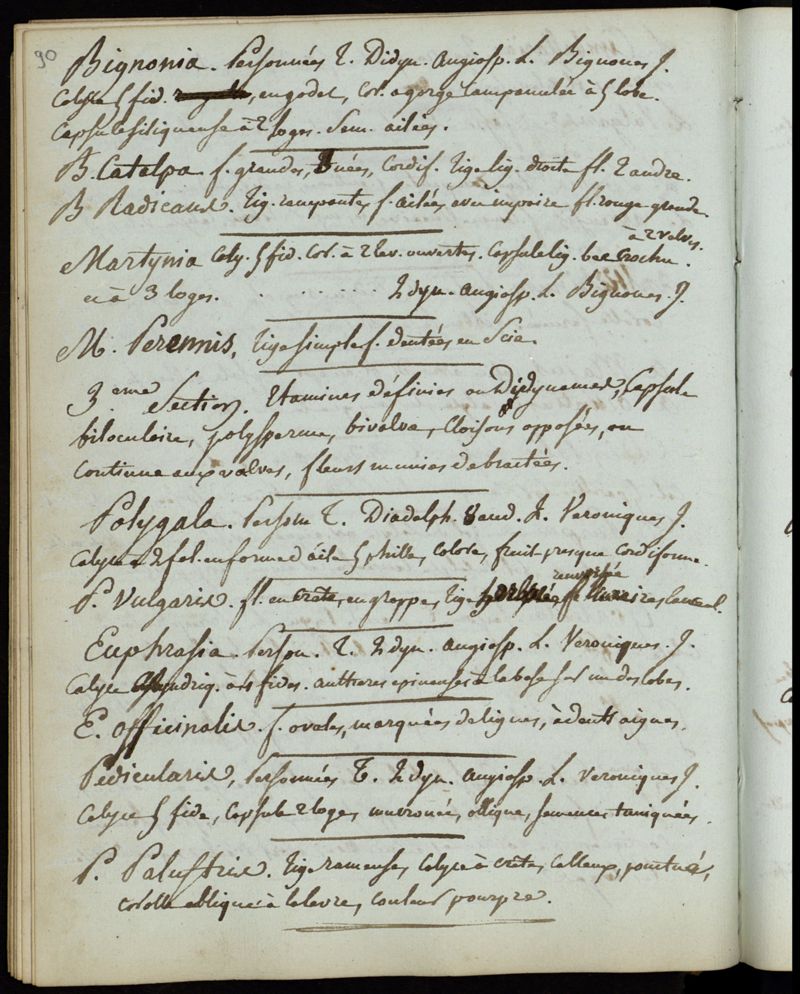 90
Bignonia. Personnées T. Didyn. angiosp. L. Bignones J.
Calyce 5 fid. en godet, Cor. a gorge campanulée à 5 lobe.
Capsule siliqueuse à 2 loges. Sem. ailées.
B. Catalpa f. grandes, cordif. Tige lig. droite fl. 2 andre.
B Radicans. Tig. rampante, f. ailées, avec impaire fl. rouge grande.
Martynia Caly. 5 fid. Cor. à 2 lev. ouvertes. Capsule lig. bec crochu.
à 2 valves.
et à 3 loges. . . . . . . . 2 dyn. angiosp. L. Bignones. J.
M. Perennis, Tige simple f. dentées en Scie.
3.eme Section. Etamines définies ou Didynames, Capsule
biloculaire, polysperme, bivalve, Cloisons opposées, ou
Continue aux valves, fleurs munies de bractées.
Polygala. Person T. Diadelph. 8 and. L. Veroniques J.
Calyce à 2 fol. en forme d'aile 5 phille, colore, fruit presque cordiforme.
P. Vulgaris. fl. en crete, en grappe, Tige
Euphrasia. Person. T. 2 dyn. angiosp. L. Veroniques. J.
Calyce Cylindriq. à 4 fides. antheres epineuses à la base sur un des lobes.
E. officinalis. f. ovales, marquées de lignes, à dents aigues.
Pedicularis, Personnées T. 2 dyn. angiosp. L. Veroniques J.
Calyce 5 fide, Capsule 2 loges mucronée, oblique, semences tuniquées.
P. Palustris. Tige rameuse, Calyce à crete, calleux, ponctués,
corolle oblique à la levre, couleur pourpre.